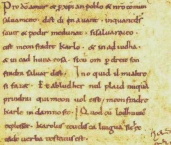 Pro dō amur et p xpian poblo et nro comun
saluament. dist di en auant. inquant dſ
sauir et podir me dunat. sisaluaraieo
cist meon fradre karlo. et in ad iudha
et in cad huna cosa. sicū om p dreit son
fradra saluar dist. Ino quid il mi altre
si fazet. Et abludher nul plaid nūquā
prindrai qui meon uol cist. meon fradre
karle in damno sit. Quod cū lodhuuic
explesset. karolus teudisca lingua
uerba testatus est.